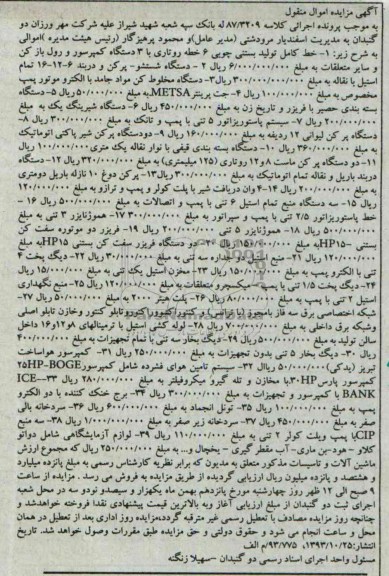 آگهی مزایده اموال منقول
به موجب پرونده اجرائی کلاسه ۸۷/۳۲۰۹ له بانک سپه شعبه شهید شیراز علیه شرکت مهر ورزان دو
گنبدان به مدیریت اسفندیار مرودشتی (مدیر عامل)و محمود پرهیزگار (رئیس هیئت مدیره )اموالی
به شرح زیر:۱- خط کامل تولید بستنی چوبی ۶ خطه روتاری با ۳ دستگاه کمپرسور و رول باز کن
و سایر متعلقات به مبلغ ۶/۰۰۰/۰۰۰/۰۰۰ ریال ۲ - دستگاه شستشو- پرکن و دربند ۶-۱۲-۱۶ تمام
استیل با نقاله به مبلغ ۳۰۰/۰۰۰/۰۰۰ ریال۳- دستگاه مخلوط کن مواد جامد با الکترو موتور پمپ
مخصوص به مبلغ ۱۰۰/۰۰۰/۰۰۰ ریال ۴- جت پرینتر METSAبه مبلغ ۵۰/۰۰۰/۰۰۰ ریال ۵- دستگاه
بسته بندی حصیر با فریزر و تاریخ زن به مبلغ ۴۵۰/۰۰۰/۰۰۰ ریال ۶- دستگاه شیرینگ پک به مبلغ
۲۰۰/۰۰۰/۰۰۰ ریال ۷- سیستم پاستوریزاتور ۵ تنی با پمپ و تانک به مبلغ ۳۰۰/۰۰۰/۰۰۰ ریال ۸-
دستگاه پر کن لیوانی ۱۲ ردیفه به مبلغ ۱۶۰/۰۰۰/۰۰۰ ریال ۹- دودستگاه پرکن شیر پاکتی اتوماتیک
به مبلغ ۳۶۰/۰۰۰/۰۰۰ ریال ۱۰- دستگاه بسته بندی قیفی با نوار نقاله یک متری۱۰۰/۰۰۰/۰۰۰ ریال
۱۱- دو دستگاه پر کن ماست ۸و۱۲ روتاری (۱۲۵ میلیمتری) به مبلغ ۳۲۰/۰۰۰/۰۰۰ ریال ۱۲- دستگاه
دربند باریل و نقاله تمام اتوماتیک به مبلغ ۳۰۰/۰۰۰/۰۰۰ ریال۱۳- پرکن دوغ ۱۰ نازله باریل دومتری
به مبلغ ۲۰۰/۰۰۰/۰۰۰ ریال ۱۴-۴ وان دریافت شیر با پلت کولر و پمپ و ترازو به مبلغ ۱۲۰/۰۰۰/۰۰۰
ریال ۱۵- سه دستگاه منبع تمام استیل ۶ تنی با پمپ و اتصالات به مبلغ ۵۰۰/۰۰۰/۰۰۰ ریال ۱۶ -
خط پاستوریزاتور ۲/۵ تنی با پمپ و سپراتور به مبلغ ۳۰۰/۰۰۰/۰۰۰ ۱۷- هموژنایزر ۳ تنی به مبلغ
۵۰۰/۰۰۰/۰۰۰ ریال ۱۸- هموژنایزر ۵ تنی ۲۰۰/۰۰۰/۰۰۰ ریال ۱۹- فریزر دو موتوره سفت کن
بستنی HP۱۵-به مبلغ ۱۵۰/۰۰۰/۰۰۰ ریال ۲۰- دو دستگاه فریزر سفت کن بستنی HP۱۵به مبلغ
۱۲۰/۰۰۰/۰۰۰ ریال ۲۱- منبع استیل دو جداره سه تنی به مبلغ ۳۰/۰۰۰/۰۰۰ ریال ۲۲- دیگ پخت ۴
تنی با الکترو پمپ به مبلغ ۱۵۰/۰۰۰/۰۰۰ ریال ۲۳- مخزن استیل یک تنی به مبلغ ۱۵/۰۰۰/۰۰۰ ریال
۲۴- دیگ پخت ۱/۵ تنی با پمپ- میکسرو متعلقات به مبلغ ۱۲۰/۰۰۰/۰۰۰ ریال ۲۵- منبع نگهداری
استیل ۲ تنی با پمپ به مبلغ ۸۰/۰۰۰/۰۰۰ ریال ۲۶- پلت هیتر ۲۰۰۰ به مبلغ ۵۰/۰۰۰/۰۰۰ ریال ۲۷-
شبکه اختصاصی برق سه فاز بامجوز (با ترانس) و کنتوراکتیوراکتیو و تابلو کنتور وخازن تابلو اصلی
وشبکه برق داخلی به مبلغ ۷۰۰/۰۰۰/۰۰۰ ریال ۲۸- لوله کشی استیل با ترمینالهای ۸و۱۲و۱۶ داخل
سالن تولید به مبلغ ۵۰۰/۰۰۰/۰۰۰ ریال ۲۹- دیگ بخار سه تنی با تمام تجهیزات به مبلغ ۴۰۰/۰۰۰/۰۰۰
ریال ۳۰- دیگ بخار ۵ تنی بدون تجهیزات به مبلغ ۲۵۰/۰۰۰/۰۰۰ ریال ۳۱- کمپرسور هواساخت
تبریز (یدکی) ۵۰/۰۰۰/۰۰۰ ریالl ۳۲- سیستم تامین هوای فشرده شامل کمپرسور۲۵HP-BOGE
کمپرسور پارسHP۳۰با مخازن و تله گیرو میکروفیلتر به مبلغ ۲۸۰/۰۰۰/۰۰۰ ریال ۳۳-ICE
BANK با کمپرسور و تجهیزات به مبلغ ۳۰۰/۰۰۰/۰۰۰ ریال ۳۴- برج خنک کننده با دو الکترو
پمپ به مبلغ ۱۰۰/۰۰۰/۰۰۰ ریال ۳۵- تونل انجماد به مبلغ ۶۰۰/۰۰۰/۰۰۰ ریال ۳۶- سردخانه بالای
صفر به مبلغ ۴۵۰/۰۰۰/۰۰۰ ریال ۳۷- سردخانه زیر صفر به مبلغ ۱/۰۰۰/۰۰۰/۰۰۰ ریال ۳۸- سه منبع
CIPبا پمپ وپلت کولر ۲ تنی به مبلغ ۱۱۰/۰۰۰/۰۰۰ ریال ۳۹- لوازم آزمایشگاهی شامل دواتو
کلاو - هود-بن ماری- آب مقطر گیری - یخچال و... به مبلغ ۲۵۰/۰۰۰/۰۰۰ ریال که مجموع ارزش
ماشین آلات و تاسیسات مذکور متعلق به مدیون که برابر نظریه کارشناس رسمی به مبلغ پانزده میلیارد
و هشتصد و پانزده میلیون ریال ارزیابی گردیده از طریق مزایده به فروش می رسد . مزایده از ساعت
۹ صبح الی ۱۲ ظهر روز چهارشنبه مورخ پانزدهم بهمن ماه یکهزار و سیصدو نودو سه در محل شعبه
اجرای ثبت دو گنبدان از مبلغ ارزیابی آغاز وبه بالاترین قیمت پیشنهادی نقدا فروخته خواهدشد و
چنانچه روز مزایده مصادف با تعطیل رسمی غیر مترقبه گرددمزایده روز اداری بعد از تعطیل در همان
محل و ساعت انجام می شود و حقوق دولتی و حق مزایده طبق مقررات وصول خواهد شد. تاریخ
انتشار:۱۳۹۳/۱۰/۲۵، ۹۳/۷۷۵/م الف
مسئول واحد اجرای اسناد رسمی دو گنبدان -سهیلا زنگنه